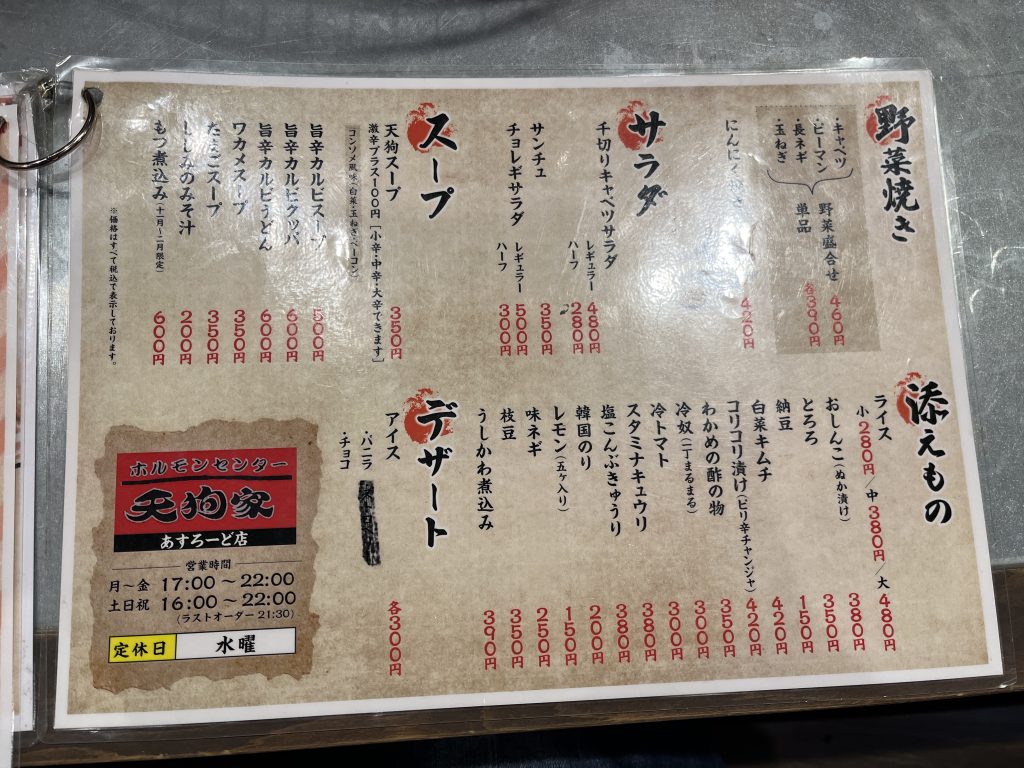 野菜焼き
・キャベツ
・ピーマン
・長ネギ
・玉ねぎ
野菜盛合せ 460円
単品 各390円
420円
サラダ
千切りキャベツサラダ
レギュラー 480円
ハーフ 280円
サンチュ 350円
チョレギサラダ
レギュラー 500円
ハーフ 300円
スープ
天狗スープ 350円
激辛プラス100円 [小辛・中辛・大辛できます]
コンソメ風味(白菜・玉ねぎ・ベーコン)
旨辛カルビスープ 500円
旨辛カルビクッパ 600円
旨辛カルビうどん 600円
ワカメスープ 350円
たまごスープ 350円
しじみのみそ汁 200円
もつ煮込み(十一月〜二月限定) 600円
※価格はすべて税込で表示しております。
添えもの
ライス
小 280円/中 380円/大 480円
おしんこ(ぬか漬け) 380円
とろろ 350円
納豆 150円
白菜キムチ 420円
コリコリ漬け(ピリ辛チャンジャ) 420円
わかめの酢の物 350円
冷奴(一丁まるまる) 300円
冷トマト 300円
スタミナキュウリ 380円
塩こんぶきゅうり 380円
韓国のり 200円
レモン(五ヶ入り) 150円
味ネギ 250円
枝豆 350円
うしかわ煮込み 390円
デザート
アイス 各300円
・バニラ
・チョコ
ホルモンセンター
天狗家
あすろーど店
営業時間
月〜金 17:00〜22:00
土日祝 16:00〜22:00
(ラストオーダー 21:30)
定休日 水曜